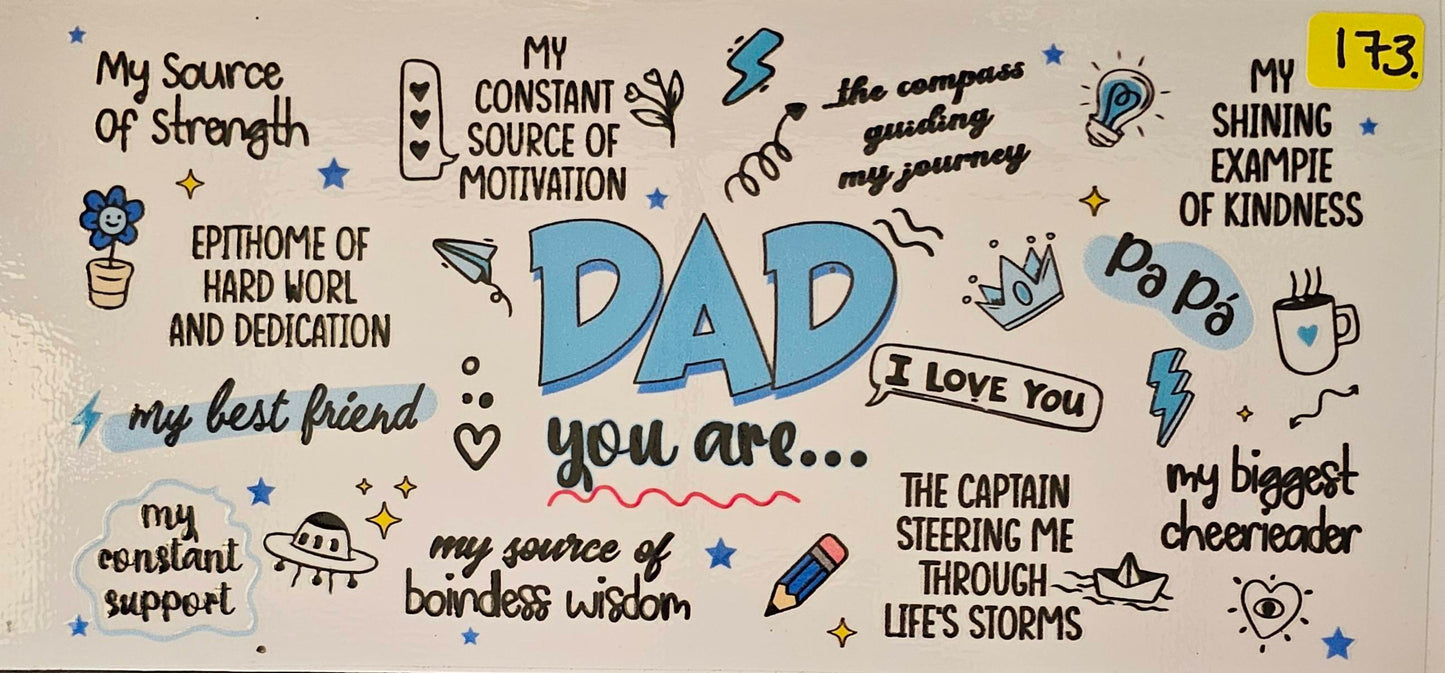 My Source
of Strength
MY
CONSTANT
SOURCE OF
MOTIVATION
the compass
guiding
my journey
MY
SHINING
EXAMPIE
OF KINDNESS
173.
EPITHOME OF
HARD WORL
AND DEDICATION
DAD
you are...
PaPá
I LOVE YOU
my best friend
my
constant
support
my source of
boindess wisdom
THE CAPTAIN
STEERING ME
THROUGH
LIFE'S STORMS
my biggest
cheerieader